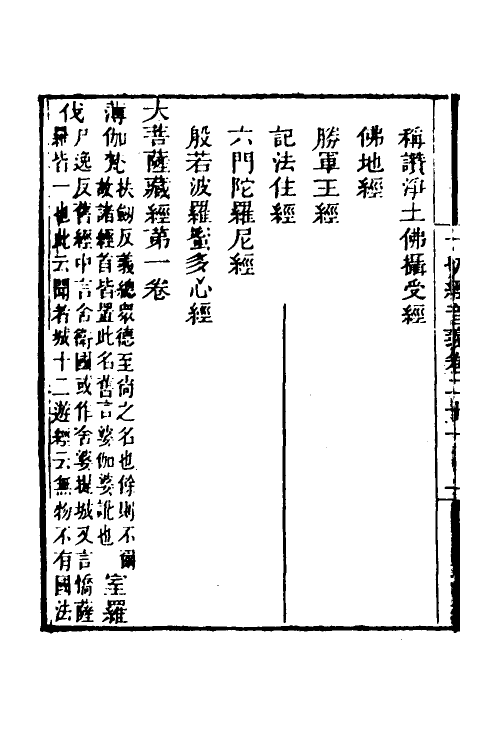 一切經音義卷二
稱讚淨土佛攝受經
佛地經
勝軍王經
記法住經
六門陀羅尼經
般若波羅蜜多心經
大菩薩藏經第一卷
薄伽梵扶劒反義總眾德至尚之名也餘則不爾
故諸經首皆置此名舊言婆伽婆訛也室羅
伐尸逸反舊經中言舍衛國或作舍婆提城又言憍薩
羅皆一也此云聞者城十二遊經云無物不有國法